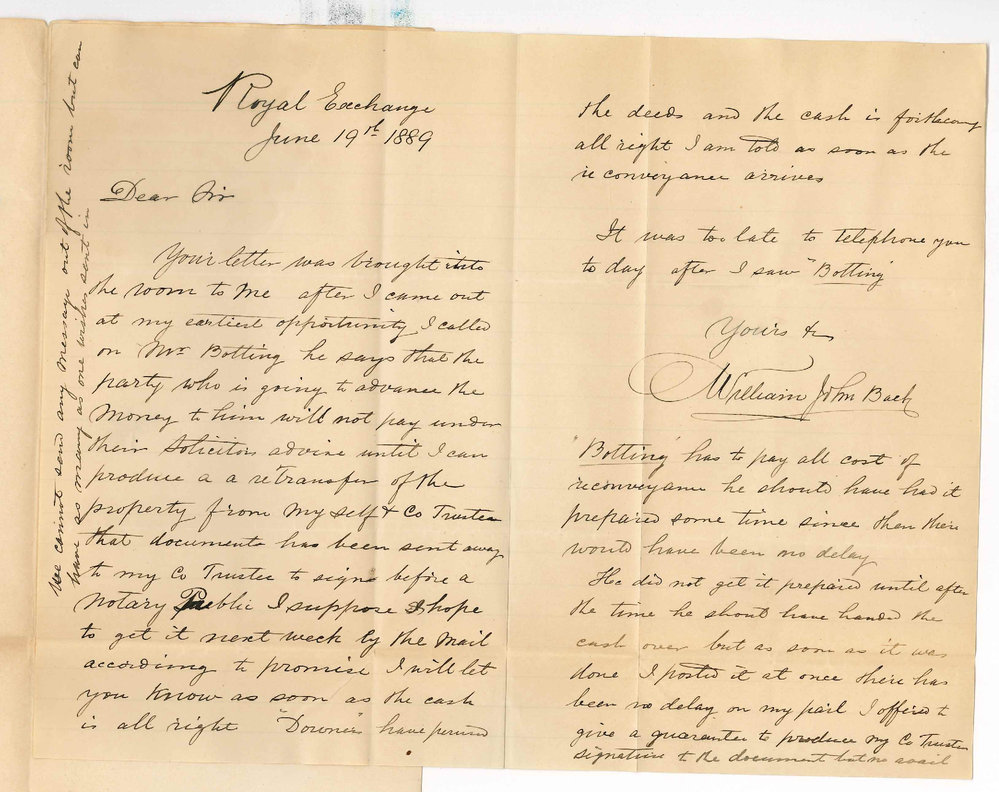 Royal Exchange
June 19th 1889
Dear Sir
Your letter was brought into
the room to me after I came out
at my earliest opportunity I called
on Mr Botting he says that the
party who is going to advance the
money to him will not pay under
their solicitors advise until I can
produce a a retransfer of the
property from myself & Co Trustee
that documents has been sent away
to my Co Trustee to signe before a
Notary Public I suppose I hope
to get it next week by the mail
according to promise I will let
you know as soon as the cash
is all right "Downer" have perused
the deeds and the cash is forthcoming
all right I am told as soon as the
reconveyance arrives
It was too late to telephone you
to day after I saw "Botting"
Yours &c
William John Back
"Botting" has to pay all cost of
reconveyance he should have had it
prepared some time since then there
would have been no delay
He did not get it prepared until after
the time he should have handed the
cash over but as soon as it was
done I posted it at once there has
been no delay on my part I offered to
give a guarantee to produce my Co Trustee
signature to the document but no avail
We cannot send any message out of the room but can
have as many as one wishes sent in